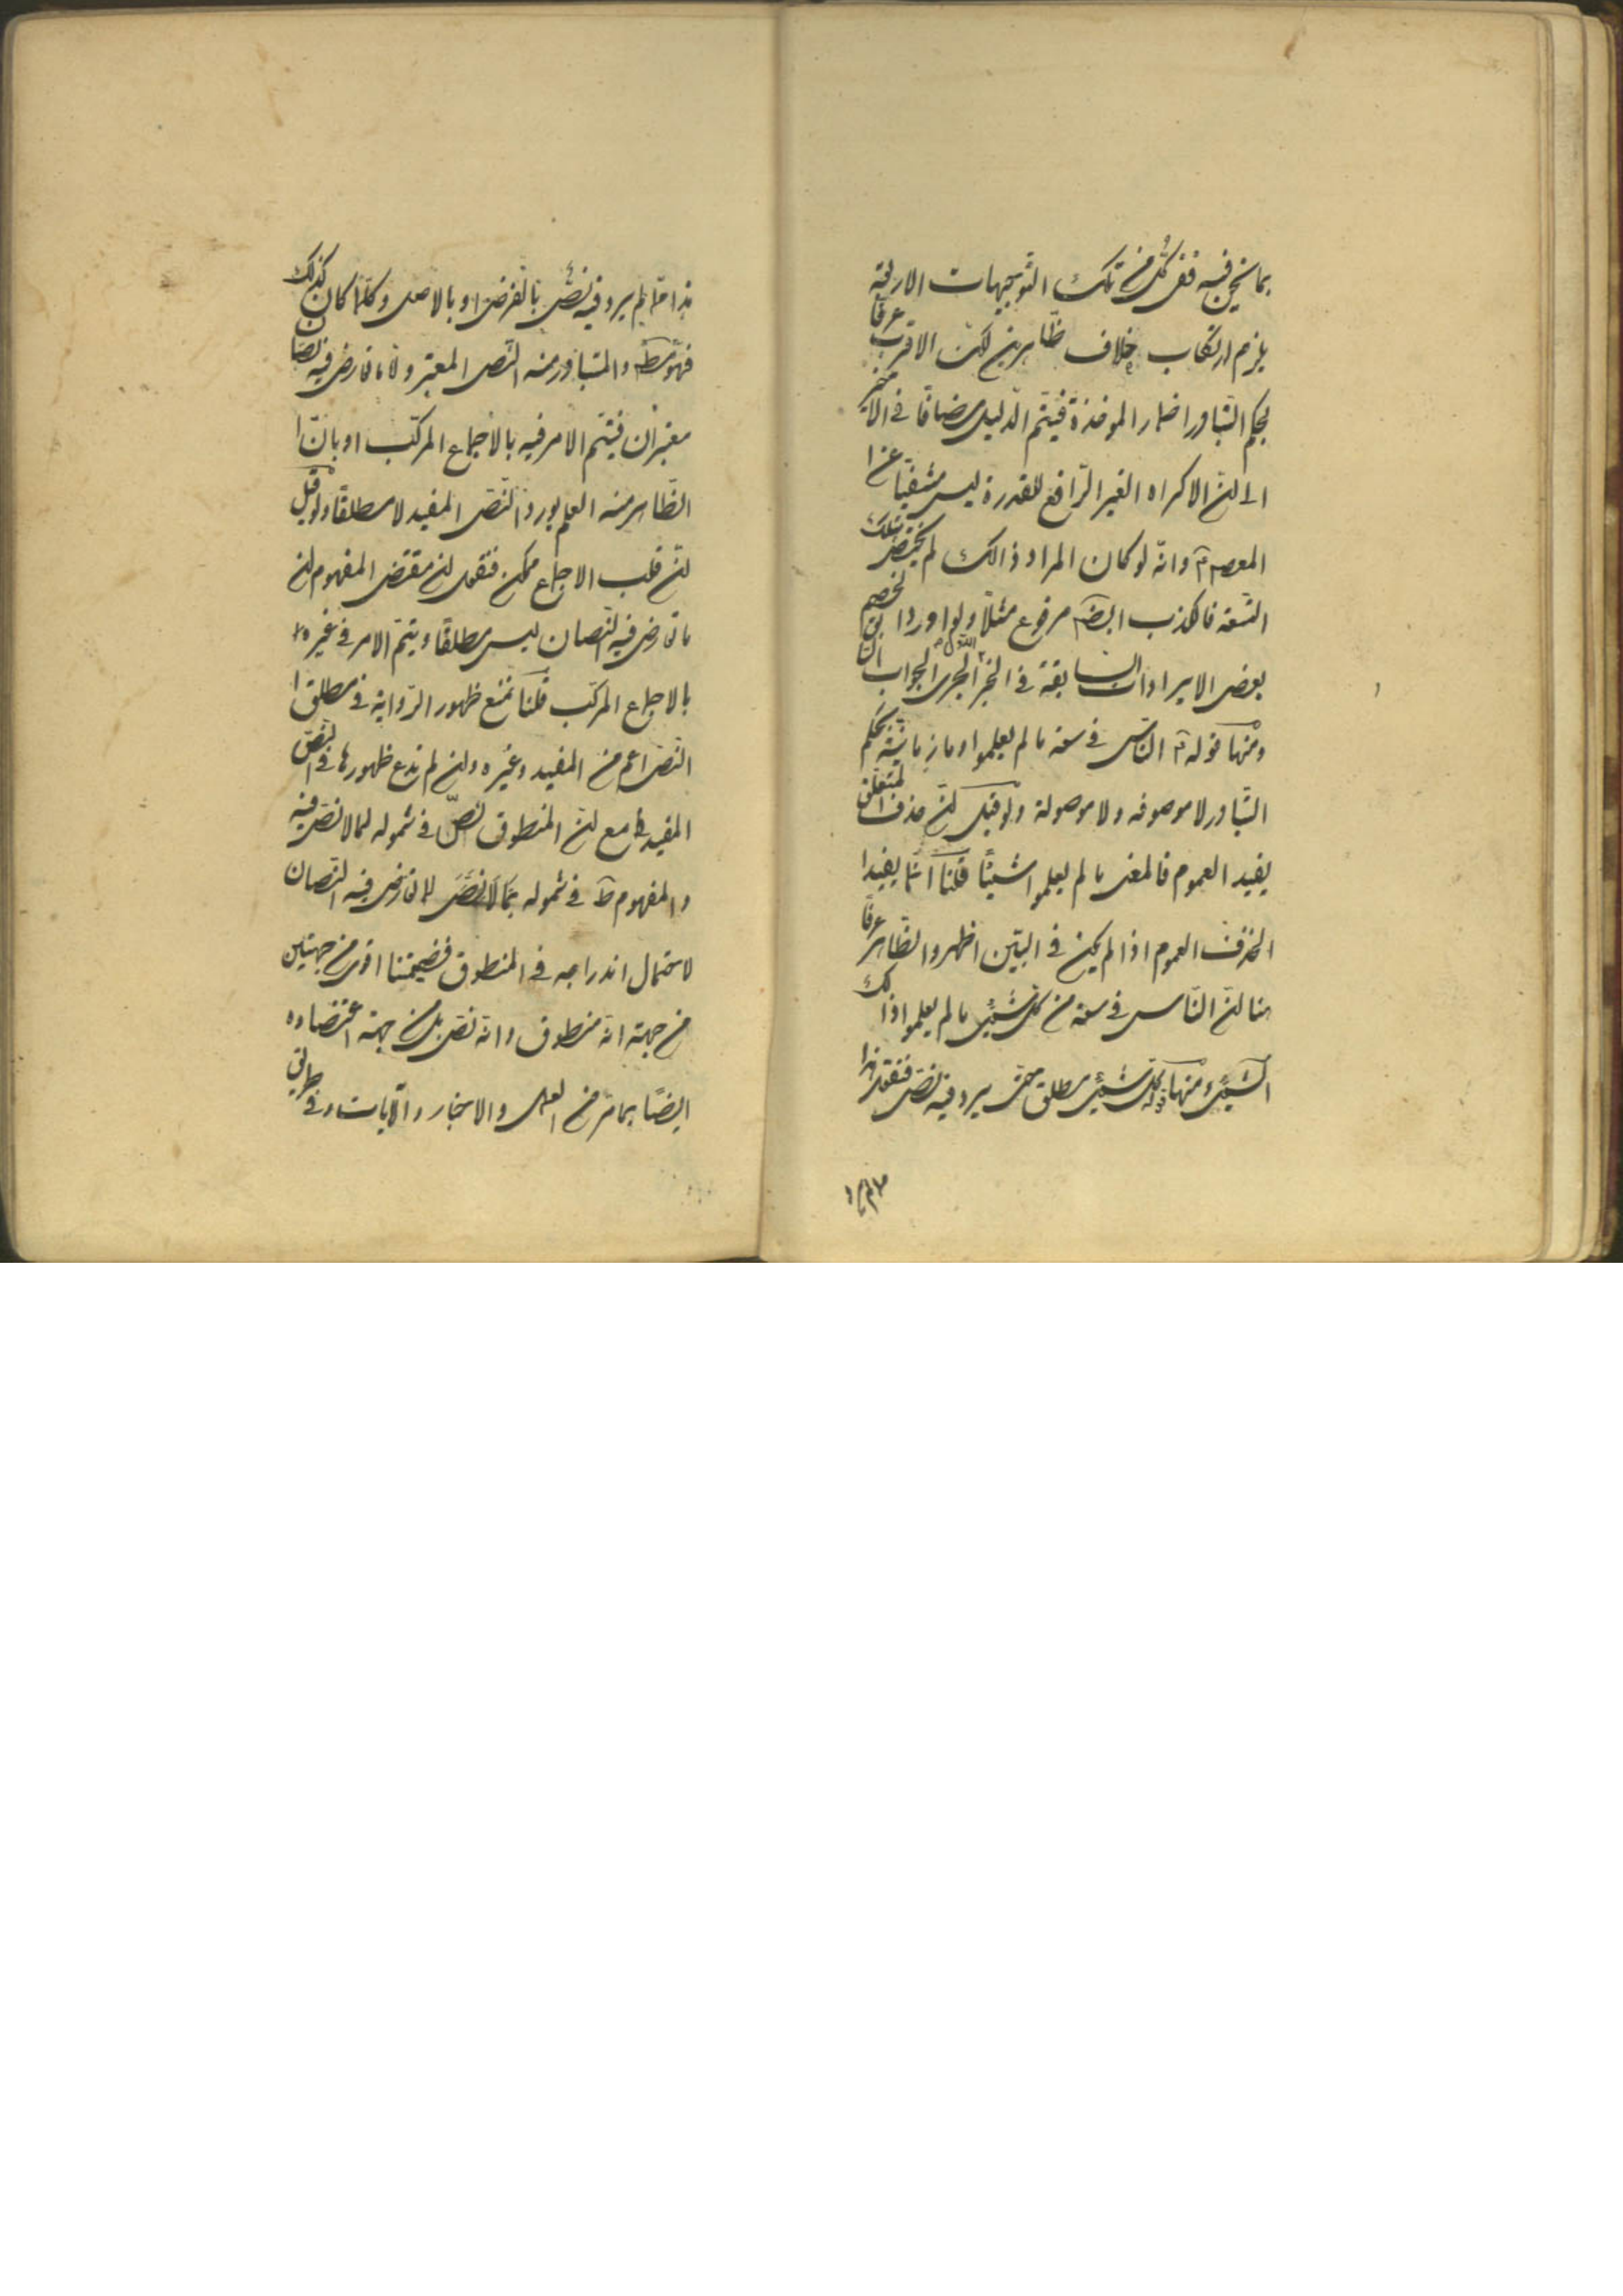 بما نحن فيه ففى كل من تلك التوجيهات الاربعة
يلزم ارتكاب خلاف ظاهرين لكن الاقرب عرفا
بحكم التبادر اضمار المؤاخذة فيتم الدليل مضافا فى الاخير
الى ان الاكراه الغير الرافع للقدرة ليس منتفيا عن ا
المعصوم وانه لو كان المراد ذالك لم يختص بتلك
التسعة فالكذب ايضا مرفوع مثلا ولو اورد الخصم
بعض الايرادات السابقة فى الخبر الاول لجرى الجواب
ومنها قوله الناس فى سعة ما لم يعلموا وما زمانية بحكم
التبادر لا موصوفه ولا موصولة ولو قيل ان حذف المتعلق
يفيد العموم فالمعنى ما لم يعلموا شيئا قلنا انما يفيد ا
الحذف العموم اذا لم يكن فى البين اظهر والظاهر عرفا
هنا ان الناس فى سعة من كل شيئ ما لم يعلموا ذالك
الشيئ ومنها قوله كل شيئ مطلق حتى يرد فيه نص فنقول هذا
هذا مما لم يرد فيه نص بالفرض او بالاصل وكلما كان كذلك
فهو مط والمتبادر منه النص المعتبر واما ما تعارض فيه نصان
معتبران فيتم الامر فيه بالاجماع المركب او بان ا
الظاهر منه العلم بورود النص المفيد لا مطلقا ولو قيل
ان قلب الاجماع ممكن فنقول ان مقتضى المفهوم ان
ما تعارض فيه النصان ليس مطلقا ويتم الامر فى غيره
بالاجماع المركب قلنا نمنع ظهور الرواية فى مطلق ا
النص اعم من المفيد وغيره وان لم ندع ظهورها فى النص
المفيد مع ان المنطوق نص فى شموله لما لا نص فيه
والمفهوم ظ فى شموله لما تعارض فيه النصان
لاحتمال اندراجه فى المنطوق فضميمتنا اقوى من جهتين
من جهة انه منطوق وانه نص بل من جهة اعتضاده
ايضا بما مر من العقل والاخبار والآيات وفى طريق